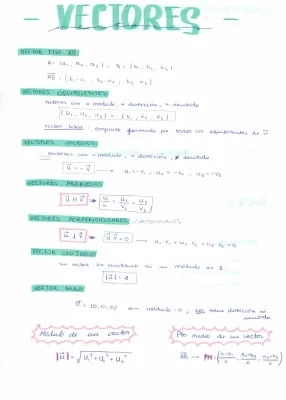 - VECTORES -
VECTOR FIJO AB
A = (a₁, a₂, a₃) ; B = (b₁, b₂, b₃)
AB = (b₁-a₁, b₂-a₂, b₃-a₃)
VECTORES EQUIPOLENTES
vectores con = módulo, = dirección, = sentido
(u₁, u₂, u₃) = (v₁, v₂, v₃)
vector libre: conjunto formado por todos los equipolentes de u
VECTORES OPUESTOS
vectores con = módulo, = dirección, ≠ sentido
u = -v → u₁ = -v₁ ; u₂ = -v₂ ; u₃ = -v₃
VECTORES PARALELOS
u || v ⇒ u₁/v₁ = u₂/v₂ = u₃/v₃
VECTORES PERPENDICULARES / ORTOGONALES
u ⊥ v ⇒ u·v = 0 → u₁·v₁ + u₂·v₂ + u₃·v₃ = 0
VECTOR UNITARIO
un vector es unitario si su módulo es 1
|u| = 1
VECTOR NULO
0 = (0,0,0) módulo = 0 ; no tiene dirección ni
sentido
Módulo de un vector
Pto medio de un vector
|u| = √u₁² + u₂² + u₃²
AB → PM = (a₁+b₁/2, a₂+b₂/2, a₃+b₃/2)